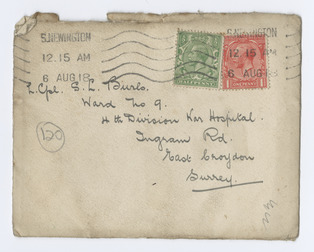 S.NEWINGTON
12.15 AM
6 AUG 18
S.NEWINGTON
12.15 AM
6 AUG 18
L.Cpl. S.L. Burls.
Ward No 9.
4th Division War Hospital.
Ingram Rd.
East Croydon
Surrey.
120